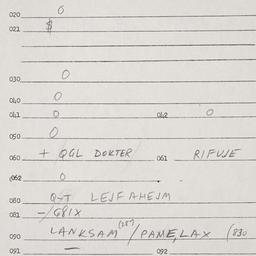 020 0
021 $
030 0
040 0
041 0 042 0
050 0
060 + QGL DOKTER 061 RIFUJE
062 0
080 Q-T LEJF AHEJM
081 -/G8IX
090 LANKSAM /PAME, LAX (830
091 — 092